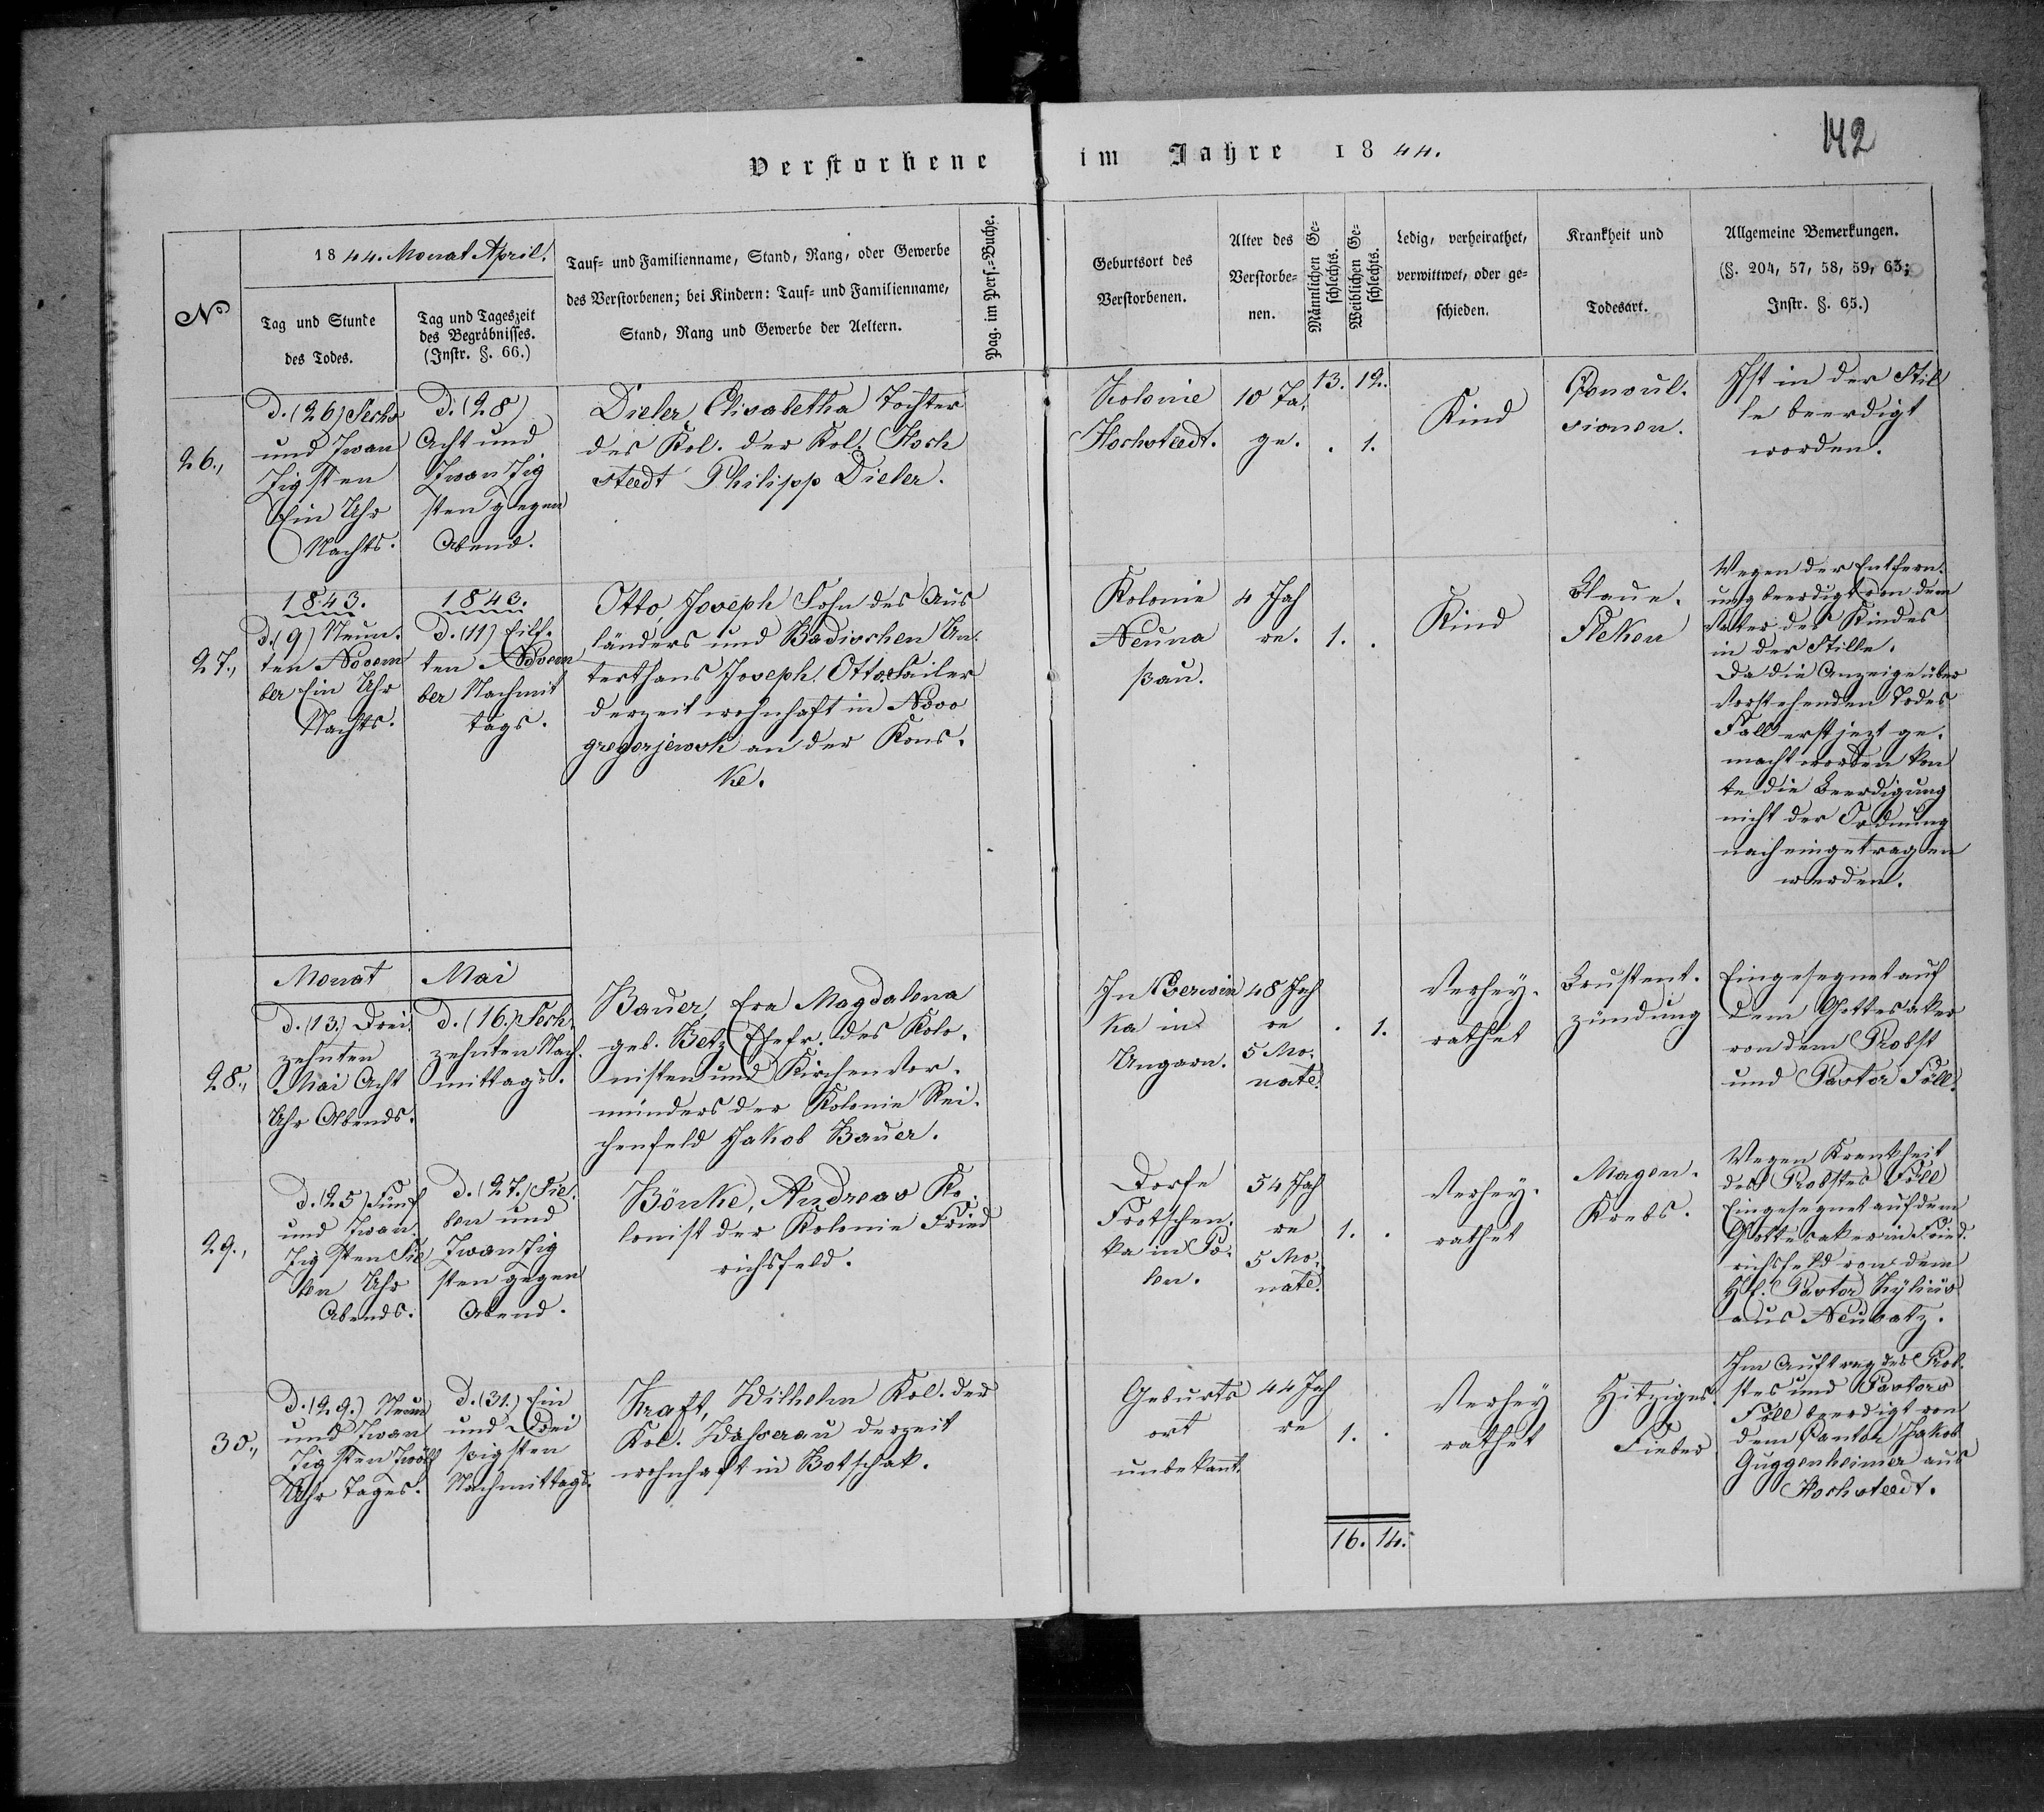 142
Verstorbene im Jahre 1844.
No
1844. Monat April.
Tag und Stunde
des Todes.
Tag und Tageszeit
des Begräbnisses.
(Instr. §. 66.)
Tauf- und Familienname, Stand, Rang, oder Gewerbe
des Verstorbenen; bei Kindern: Tauf- und Familienname,
Stand, Rang und Gewerbe der Aeltern.
Pag. im Pers.-Buche.
Geburtsort des
Verstorbenen.
Alter des
Verstorbe-
nen.
Männlichen Ge-
schlechts.
Weiblichen Ge-
schlechts.
Ledig, verheirathet,
verwittwet, oder ge-
schieden.
Krankheit und
Todesart.
Allgemeine Bemerkungen.
(§. 204, 57, 58, 59, 63;
Instr. §. 65.)
26.,
D. (26) Sechs
und Zwan
zigsten
Ein Uhr
Nachts.
D. (28)
Acht und
Zwanzig
sten gegen
Abend.
Dieler, Elisabetha Tochter
des Kol. der Kol. Hoch
staedt Philipp Dieler.
Kolonie
Hochstaedt.
10 Ta,
ge.
13. 12.
. 1.
Kind
Convul.
sionen.
Ist in der Stil
le beerdigt
worden.
27.,
1843.
D. (9) Neun.
ten Novem
ber Ein Uhr
Nachts.
1843.
D. (11) Eilf.
ten Novem
ber Nachmit
tags.
Otto, Joseph Sohn des Aus
länders und Badischen Un.
terthans Joseph Otto, Sailer
derzeit wohnhaft in Novo
gregorjewsk an der Kons.
ke.
Kolonie
Neuna
ßau.
4 Jah
re.
1. .
Kind
Blaue.
Fleken
Wegen der Entfern.
ung beerdigt von dem
Vater des Kindes
in der Stille.
Da die Anzeige über
vorstehenden Todes
Fall erst jezt ge.
macht worden kon
te die Beerdigung
nicht der Ordnung
nach eingetragen
werden.
Monat Mai
28.,
D. (13.) Drei.
zehnten
Mai Acht
Uhr Abends.
D. (16.) Sech.
zehnten Nach.
mittags.
Bauer, Eva Magdalena
geb. Betz Ehefr. des Kolo.
nisten und Kirchenvor.
münders der Kolonie Rei.
chenfeld Jakob Bauer.
In Berwin
ka in
Ungarn.
48 Jah
re
5 Mo.
nate.
. 1.
Verhey.
rathet
Brustent.
zündung
Eingesegnet auf
dem Gottesaker
von dem Probst
und Pastor Föll.
29.,
D. (25) Fünf
und Zwan.
zigsten Sie
ben Uhr
Abends.
D. (27.) Sie.
ben und
Zwanzig
sten gegen
Abend.
Bönke, Andreas Ko.
lonist der Kolonie Fried
richsfeld.
Dorfe
Frotschen.
ka in Po.
len.
54 Jah
re
5 Mo.
nate.
1. .
Verhey.
rathet
Magen.
Krebs.
Wegen Krankheit
des Probstes Föll
Eingesegnet auf dem
Gottesaker in Fried.
richsfeld von dem
H. Pastor Kylius
aus Neusatz.
30.,
D. (29.) Neun
und Zwan
zigsten Zwölf
Uhr Tages.
D. (31.) Ein
und Drei
sigsten
Nachmittags.
Kraft, Wilhelm Kol. der
Kol. Wasserau derzeit
wohnhaft in Botschak.
Geburts
ort
unbekannt.
44 Jah
re
1. .
Verhey
rathet
Hitziges.
Fieber
Im Auftrag des Prob.
stes und Pastors
Föll beerdigt von
dem Cantor Jakob
Guggenheimer aus
Hochstaedt.
16. 14.